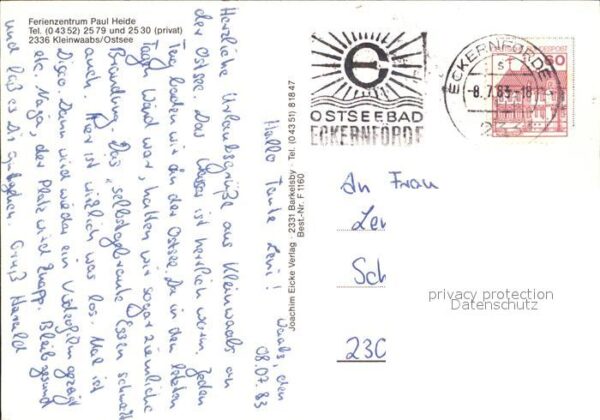 Ferienzentrum Paul Heide
Tel. (0 43 52) 25 79 und 25 30 (privat)
2336 Kleinwaabs/Ostsee
Waabs, den
08.07.83
Hallo Tante Leni!
Herzliche Urlaubsgrüße aus Kleinwaabs an
der Ostsee. Das Wasser ist herrlich warm. Jeden
Tag baden wir in der Ostsee. Da in den letzten
Tagen Wind war, hatten wir sogar ziemliche
Brandung. Das "selbstgebraute" Essen schmeckt
auch. Hier ist wirklich was los. Mal ist
Disco. Dann wird wieder ein Videofilm gezeigt
etc. Naja, der Platz wird knapp. Bleib gesund
und laß es Dir gutgehen. Gruß Harald
Joachim Eicke Verlag 2331 Barkelsby Tel. (0 43 51) 8 18 47
Best.-Nr. F 1160
OSTSEEBAD
ECKERNFÖRDE
ECKERNFÖRDE
-8.7.83-18
BUNDESPOST
60
An Frau
Ler
Sch
230
privacy protection
Datenschutz